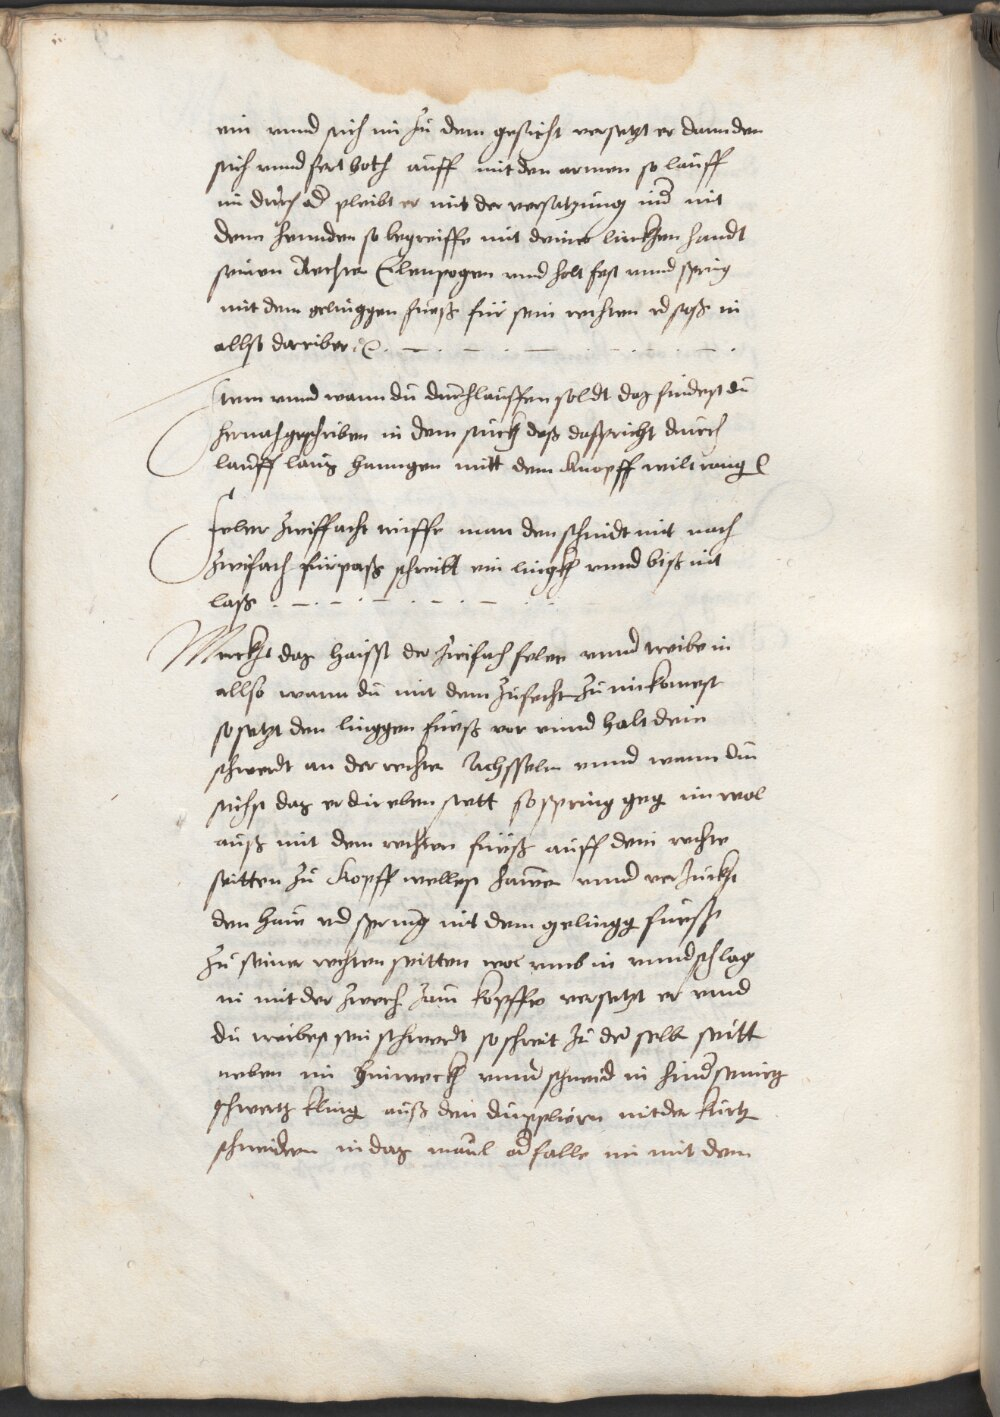 ein vnnd stich im zu dem gesicht versetzt er dann den
stich vnnd fert hoch auff mit den armen so lauff
im durch od pleibt er mit der versatzung mit
denn hennden so begreiffe mit deiner linckhen handt
seinen Rechten Elenpogen vnnd helt fest vnnd spring
mit dem gelinggen fuess für sein rechten vnd stoss in
allso darüber
Item vnnd wann du durchlauffen soldt das findest du
hernach geschriben in dem stuckh das da spricht durch
lauff lass hanngen mitt dem knopff wilt rang
Feler zwiffacht triffe man den schnidt mit mach
Zwifach fürpass schreitt ein linckh vnnd biss nit
lass
Merckht das haisst der zwifach feler vnnd treibe in
allso wann du mit dem zufechten zu im komest
so setzt den linggen fuess vor vnnd halt dein
schwerdt an der rechten Achsseln vnnd wann du
sichst das er dir eben sett so spring geg im wol
auss mit dem rechten fuess auff dein rechte
seitten zu kopff wellest hawen vnnd verzuckh
den haw vnd spring mit dem gelingg fuess
zu seiner rechten seitten wol vmb in vnnd schlag
in mit der zwerch zum kopffe versetzt er vnnd
du triibest sein schwerdt so schreit zu der selb seitt
neben im hinweckh vnnd schneid in hinder seines
schwertz kling auss dem duppliern mit der kurtz
schneiden in das maul od falle im mit dem